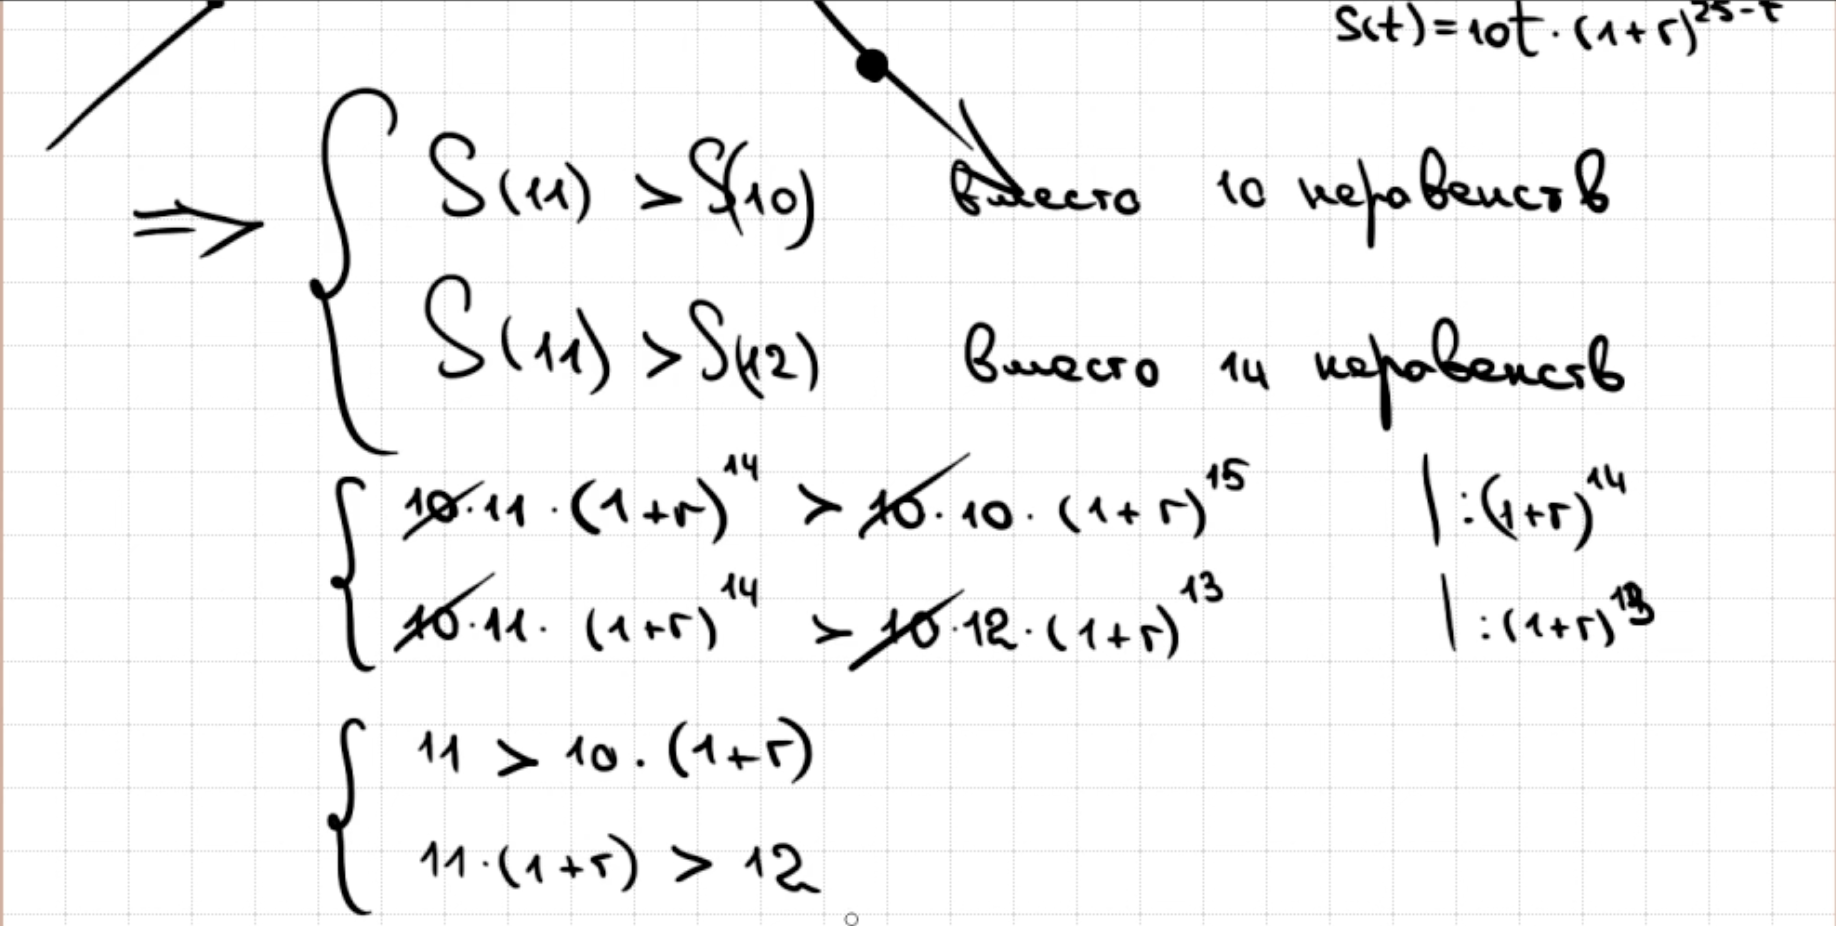 S(t)=10t·(1+r)^25-t
⇒ { S(11) > S(10) вместо 10 неравенств
S(11) > S(12) вместо 14 неравенств
{ 10·11·(1+r)^14 > 10·10·(1+r)^15 | :(1+r)^14
10·11·(1+r)^14 > 10·12·(1+r)^13 | :(1+r)^13
{ 11 > 10·(1+r)
11·(1+r) > 12